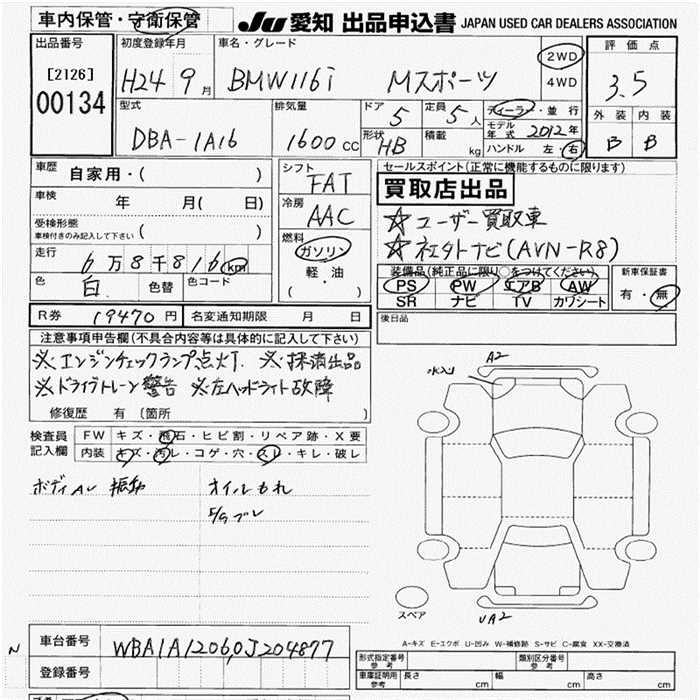 車内保管・守衛保管
JU 愛知 出品申込書 JAPAN USED CAR DEALERS ASSOCIATION
出品番号 初度登録年月 車名・グレード 2WD 評価点
[2126] H24 9月 BMW116i Mスポーツ 4WD 3.5
00134
型式 排気量 ドア 定員 ディーラー・並行 外装 内装
DBA-1A16 1600cc 5 5人 モデル年式 2012年 B B
形状 HB 積載 kg ハンドル 左・右
車歴 自家用・( )
シフト FAT
セールスポイント(正常に機能するものに限ります)
買取店出品
車検 年 月( 日)
冷房 AAC
☆ユーザー買取車
受検形態 ( )
車検付きのみ記入して下さい
☆社外ナビ(AVN-R8)
走行 6万8千816km
燃料 ガソリン
軽・油
( )
装備品(純正品に限り○をつけてください) 新車保証書
PS PW エアB AW 有・無
SR ナビ TV カワシート
色 白 色替 色コード
R券 19470円 名変通知期限 月 日
後日品
注意事項申告欄(不具合内容等は具体的に記入して下さい)
※エンジンチェックランプ点灯. ※保留出品
※ドライブトレーン警告 ※左ヘッドライト故障
修復歴 有〔箇所 〕
水入り A2
検査員記入欄 FW キズ・飛石・ヒビ割・リペア跡・X要
内装 キズ・汚レ・コゲ・穴・スレ・キレ・破レ
ボディAU 振動 オイルもれ
スペア UA2
A-キズ E-エクボ U-凹み W-補修跡 S-サビ C-腐食 XX-交換済
N 車台番号 WBA1A12060J204877
登録番号
形式指定番号 参考 類別区分番号 参考
車庫証明用 参考 長さ cm 幅 cm 高さ cm